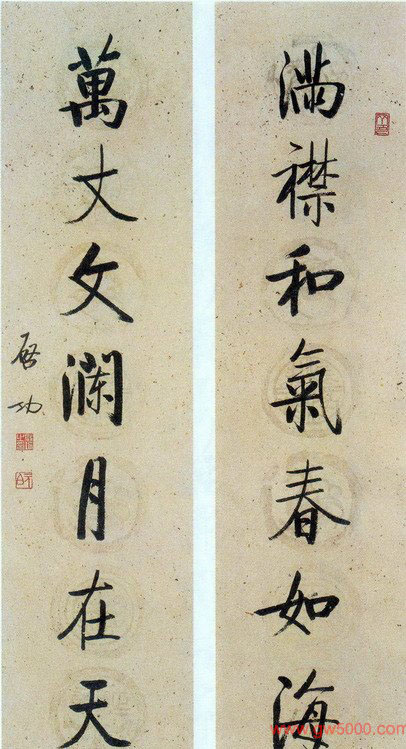 满襟和氣春如海
萬丈文澜月在天
启功
www.gw5000.com